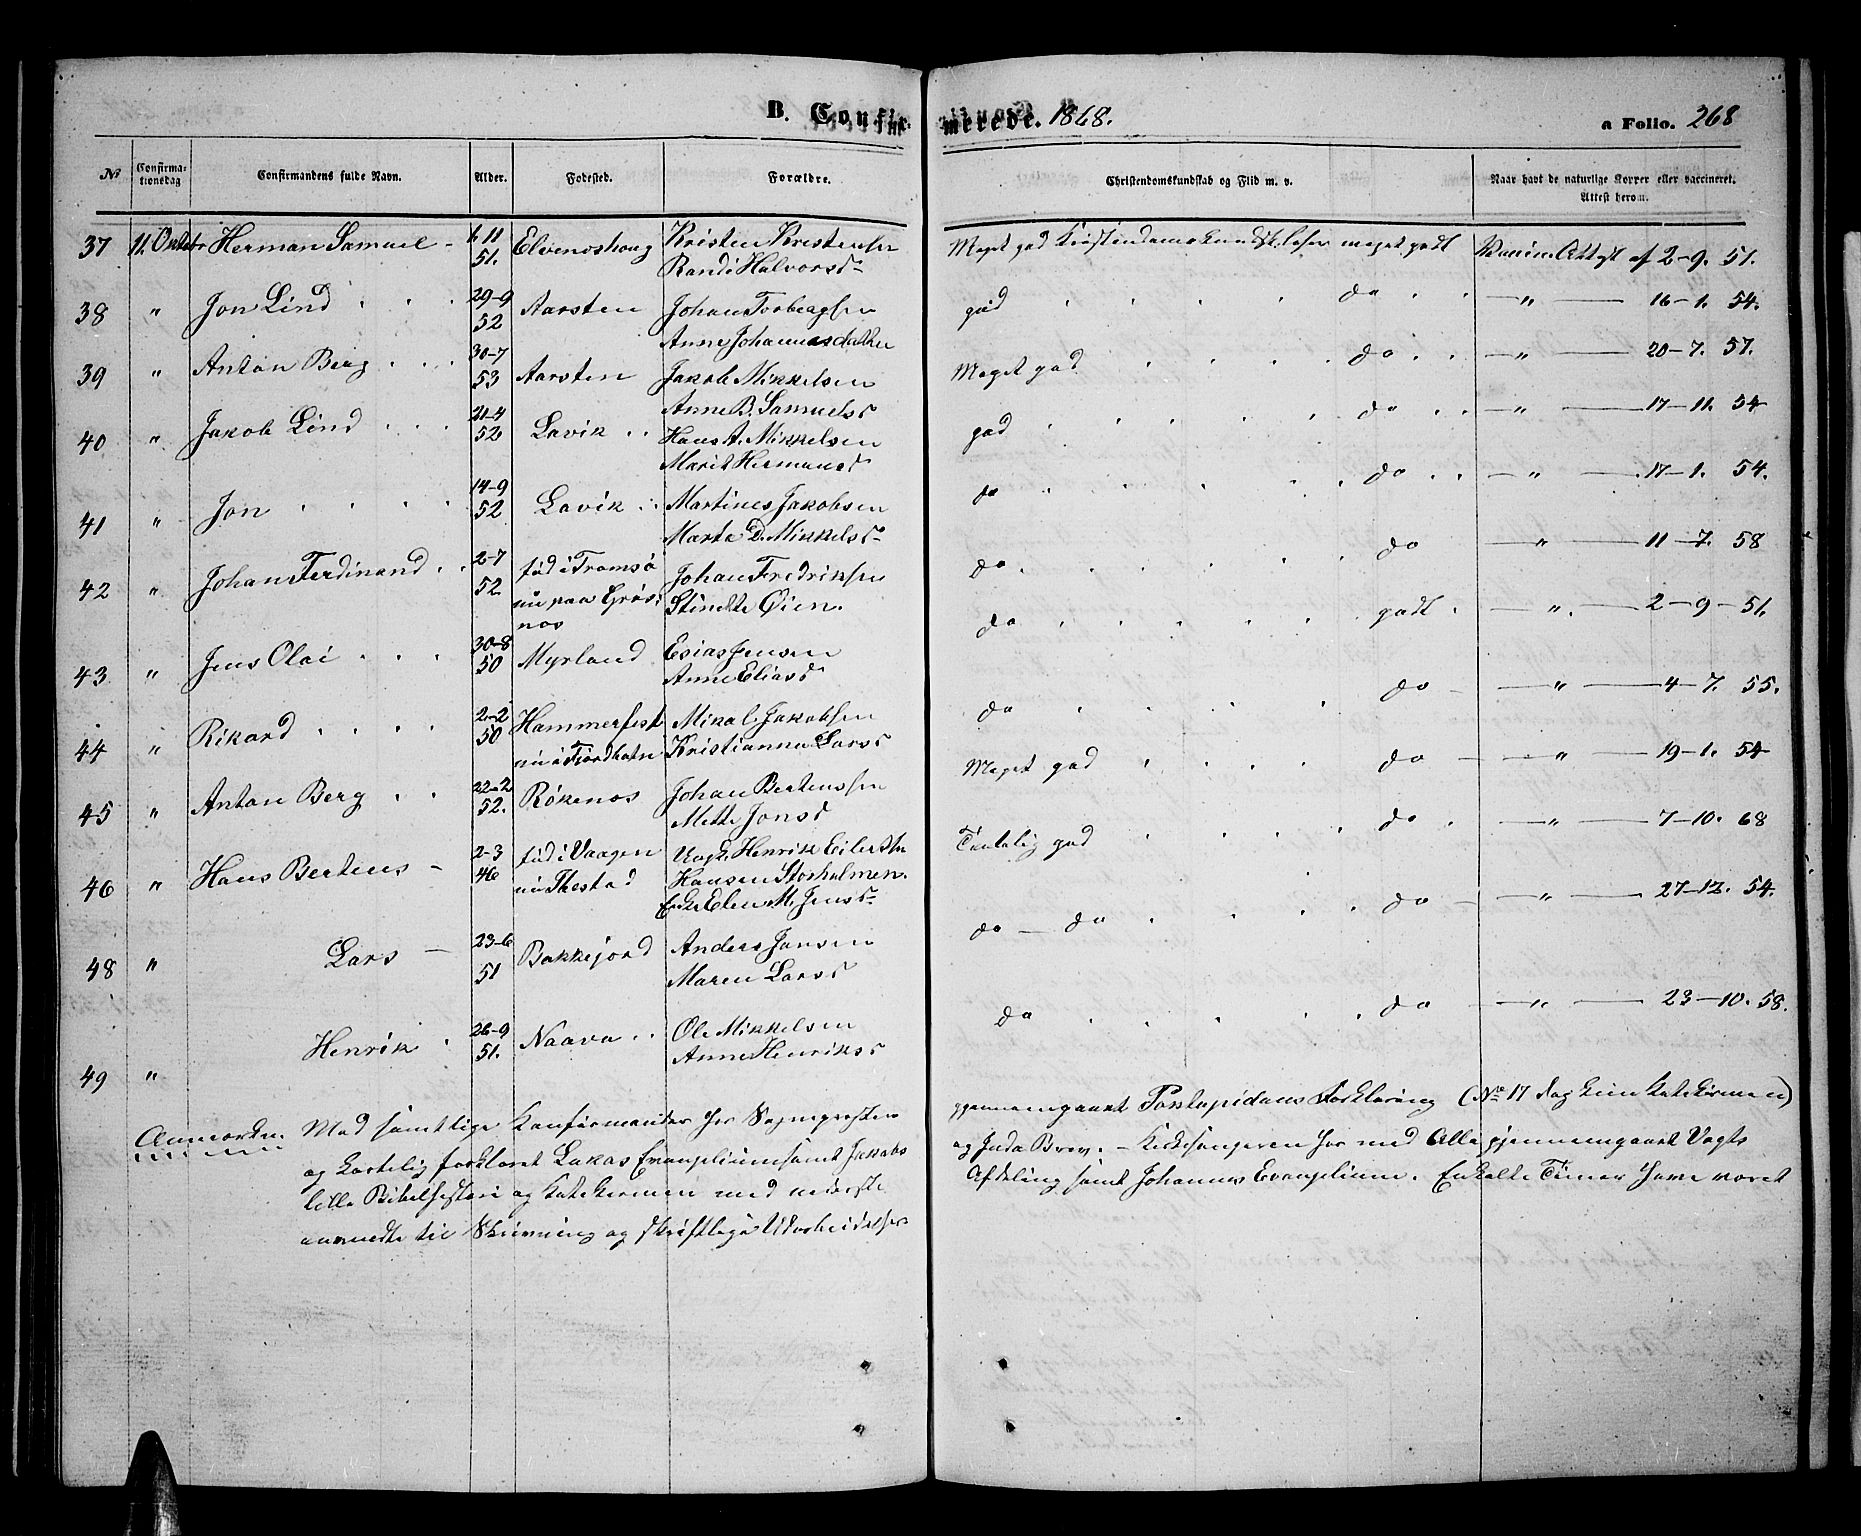 B. Confir-
merede. 1868.
a Folio. 268
No
Confirma-
tionsdag
Confirmandens fulde Navn.
Alder.
Fødested.
Forældre.
Christendomskundskab og Flid m. v.
Naar havt de naturlige Kopper eller vaccineret.
Attest herom.
37 11. Oktobr Herman Samuel - 6 11 51. Elvenoshaug Kristen Kristensen
Randi Halvorsd Meget god Kristendomskundsk. læser meget godt Vaccine Attest af 2-9. 51.
38 " Jon Lind 29-9 52 Aarsten Johan Torbergsen
Anne Johannesdatter god do " 16-1. 54.
39 " Anton Berg 30-7 53 Aarsten Jakob Mikkelsen
Anne B. Samuelsd Meget god do " 20-7. 57.
40 " Jakob Lind 21-4 52 Lavik Hans A. Mikkelsen
Marit Hermansd god do " 17-11. 54
41 " Jon 14-9 52 Lavik Martines Jakobsen
Marta D. Mikkelsd do do " 17-1. 54.
42 " Johan Ferdinand 2-7 52 fød i Tromsø
nu paa Gros-
nos Johan Fredriksen
Stindte Øien. do do " 11-7. 58
43 " Jens Olai 30-8 50 Myrland Esias Jensen
Anne Eliasd do godt " 2-9-51.
44 " Rikard 2-2 50 Hammerfest
nu i Fjordbotn Mikal Jakobsen
Kristianna Larsd do do " 4-7. 55.
45 " Anton Berg 22-2 52. Røkenos Johan Bertenssen
Mette Jonsd Meget god do " 19-1. 54
46 " Hans Bertens - 2-3 46 fød i Vaagen
nu Thestad Ungk. Henrik Eilertsen
Hansen Storholmen.
Enke Elen M. Jensd Temelig god do " 7-10. 68
48 " Lars - 23-6 51 Bakkejord Anders Jansen
Maren Larsd do - do do " 27-12. 54.
49 " Henrik 26-9 51. Naava Ole Mikkelsen
Anne Henriksd do do " 23-10. 58.
Anmærkn. Med samtlige Konfirmander har Sognepresten
gjennemgaaet Pontopidans Forklaring (No 17
og kortelig forklaret Lukas Evangelium samt Jakobs
og Juda Brev. - Kirkesangeren har med Alle gjennemgaaet Vogts
lille Bibelhistorie og Katekismen med nederste
Afdeling samt Johannes Evangelium. Enkelte Timer have været
anvendte til Skrivning og skriftlige Udarbeidelser